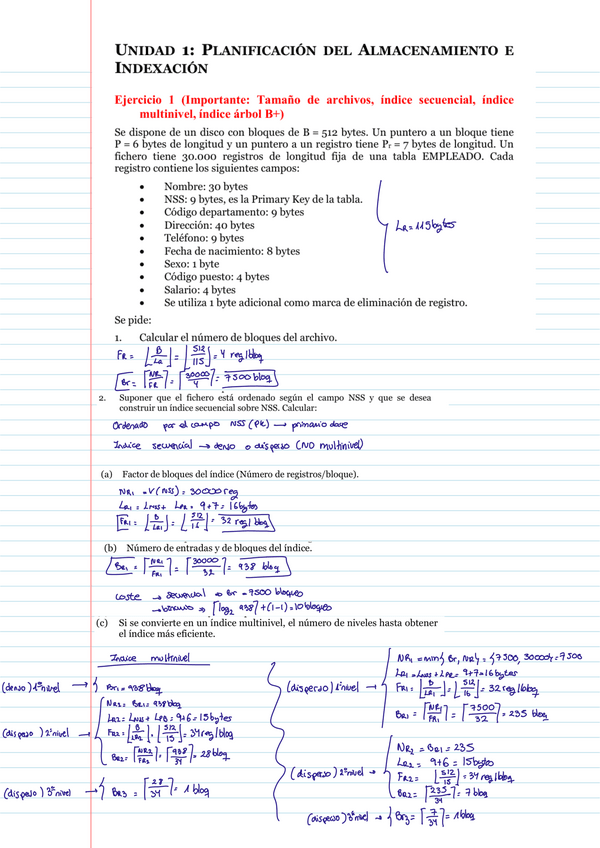 UNIDAD 1: PLANIFICACIÓN DEL ALMACENAMIENTO E
INDEXACIÓN
Ejercicio 1 (Importante: Tamaño de archivos, índice secuencial, índice
multinivel, índice árbol B+)
Se dispone de un disco con bloques de B = 512 bytes. Un puntero a un bloque tiene
P = 6 bytes de longitud y un puntero a un registro tiene Pr = 7 bytes de longitud. Un
fichero tiene 30.000 registros de longitud fija de una tabla EMPLEADO. Cada
registro contiene los siguientes campos:
• Nombre: 30 bytes
• NSS: 9 bytes, es la Primary Key de la tabla.
• Código departamento: 9 bytes
• Dirección: 40 bytes
• Teléfono: 9 bytes
• Fecha de nacimiento: 8 bytes
• Sexo: 1 byte
• Código puesto: 4 bytes
• Salario: 4 bytes
• Se utiliza 1 byte adicional como marca de eliminación de registro.
LR = 115 bytes
Se pide:
1. Calcular el número de bloques del archivo.
FR = ⌊B/LR⌋ = ⌊512/115⌋ = 4 reg/bloq
Br = ⌈NR/FR⌉ = ⌈30000/4⌉ = 7500 bloq
2. Suponer que el fichero está ordenado según el campo NSS y que se desea
construir un índice secuencial sobre NSS. Calcular:
Ordenado por el campo NSS (PK) → primario clave
Indice secuencial → denso o disperso (NO multinivel)
(a) Factor de bloques del índice (Número de registros/bloque).
NRI = V(NSS) = 30000 reg
LRI = LNSS + LPR = 9+7 = 16 bytes
FRI = ⌊B/LRI⌋ = ⌊512/16⌋ = 32 reg/bloq
(b) Número de entradas y de bloques del índice.
BRI = ⌈NRI/FRI⌉ = ⌈30000/32⌉ = 938 bloq
coste → secuencial → Br = 7500 bloques
→ binario ⇒ ⌈log2 938⌉ + (1-1) = 10 bloques
(c) Si se convierte en un índice multinivel, el número de niveles hasta obtener
el índice más eficiente.
Indice multinivel
(denso) 1er nivel → BR1 = 938 bloq
(disperso) 2º nivel →
NR2 = BR1 = 938 bloq
LR2 = LNSS + LPB = 9+6 = 15 bytes
FR2 = ⌊B/LR2⌋ = ⌊512/15⌋ = 34 reg/bloq
BR2 = ⌈NR2/FR2⌉ = ⌈938/34⌉ = 28 bloq
(disperso) 3er nivel → BR3 = ⌈28/34⌉ = 1 bloq
(disperso) 1er nivel →
NR1 = min{Br, NR} = {7500, 30000} = 7500
LR1 = LNSS + LPR = 9+7 = 16 bytes
FR1 = ⌊B/LR1⌋ = ⌊512/16⌋ = 32 reg/bloq
BR1 = ⌈NR1/FR1⌉ = ⌈7500/32⌉ = 235 bloq
(disperso) 2º nivel →
NR2 = BR1 = 235
LR2 = 9+6 = 15 bytes
FR2 = ⌊512/15⌋ = 34 reg/bloq
BR2 = ⌈235/34⌉ = 7 bloq
(disperso) 3er nivel → BR3 = ⌈7/34⌉ = 1 bloq